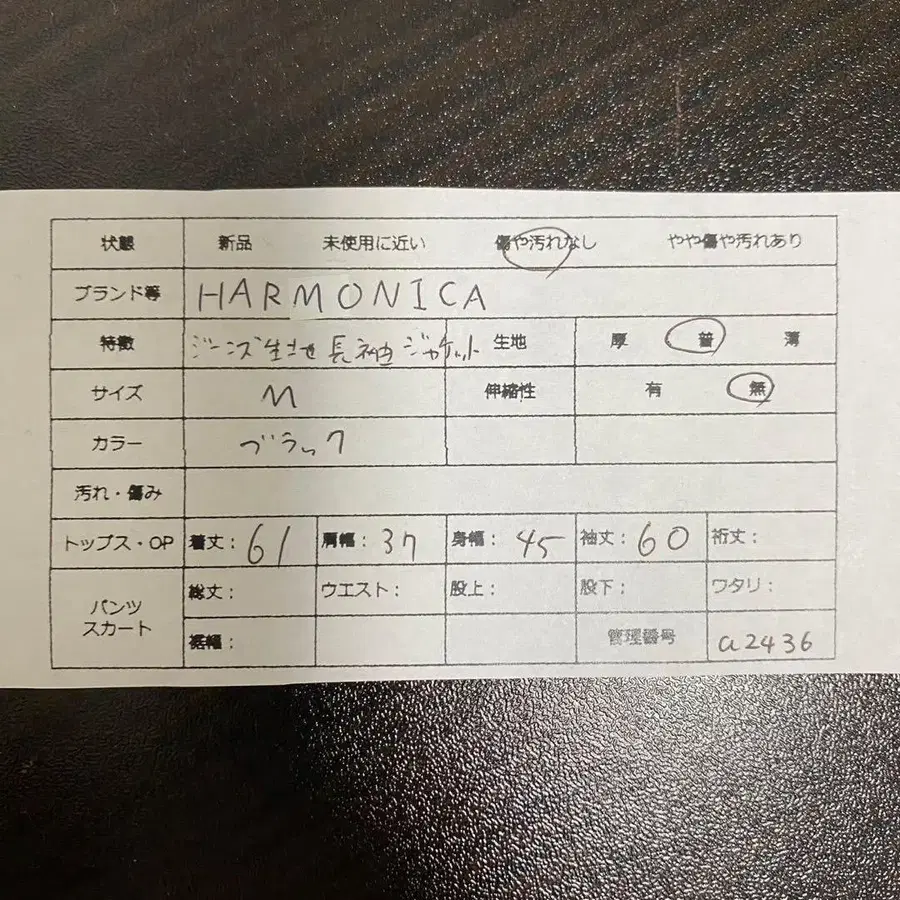 状態 新品 未使用に近い 傷や汚れなし やや傷や汚れあり
ブランド等 HARMONICA
特徴 ジーンズ生地 長袖 ジャケット 生地 厚 普 薄
サイズ M 伸縮性 有 無
カラー ブラック
汚れ・傷み
トップス・OP 着丈：61 肩幅：37 身幅：45 袖丈：60 裄丈：
パンツ スカート 総丈： ウエスト： 股上： 股下： ワタリ：
裾幅： 管理番号 a2436